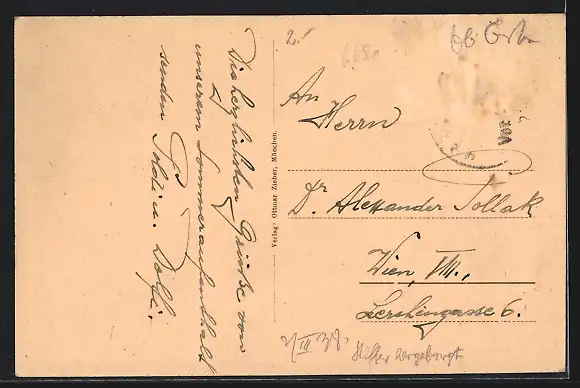 Die herzlichsten Grüße von
unserem Sommeraufenthalt
senden Poldi u. Dolfi.
Verlag: Ottmar Zieher, München.
2.-
6680
An
Herrn
Dr. Alexander Pollak
Wien, VIII.,
Lerchengasse 6.